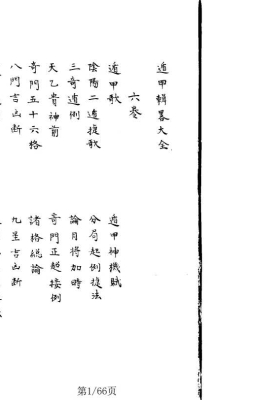 遁甲輯畧大全
六卷
遁甲歌
遁甲神機賦
陰陽二遁捷歌
分局起例捷法
三奇遁例
論月將加時
天乙貴神前
奇門正超接例
奇門五十六格
諸格總論
八門吉凶斷
九星吉凶斷
第1/66页